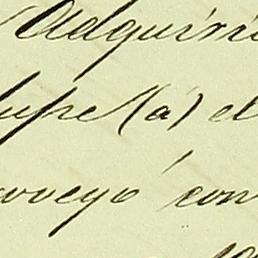 Adquirió
lupe (a) el
proveyó con